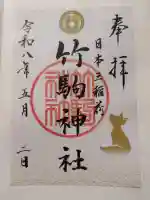 奉拝
日本三稲荷
竹駒神社
令和八年五月二日